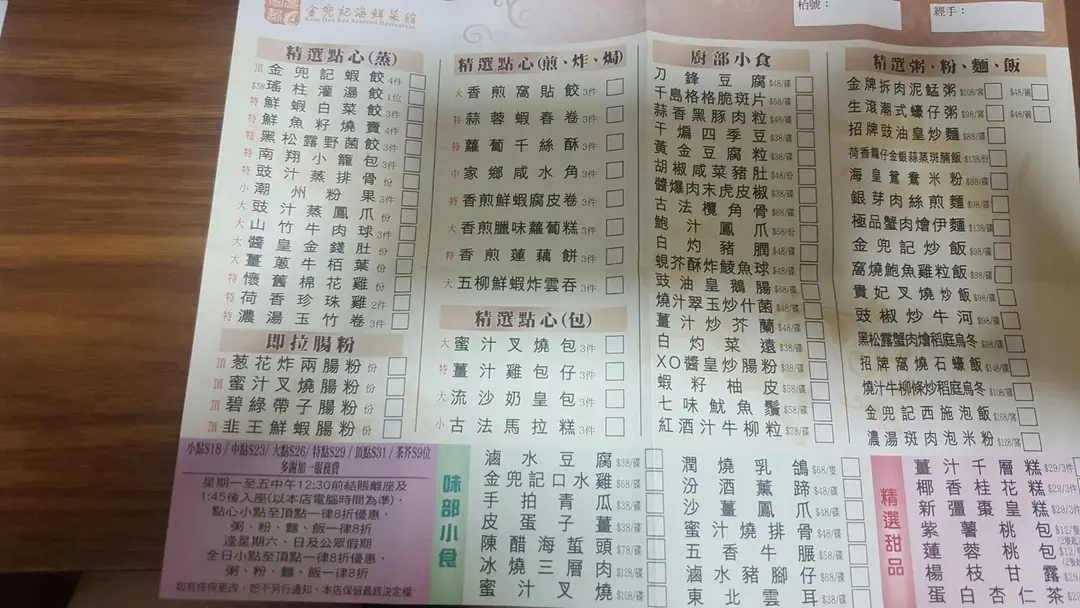 金兜記海鮮菜館
枱號：
經手：
精選點心(蒸)
頂 金兜記蝦餃 4件
$38 瑤柱灌湯餃 1位
特 鮮蝦白菜餃 3件
特 鮮魚籽燒賣 4件
特 黑松露野菌餃 3件
特 南翔小籠包 3件
特 豉汁蒸排骨 份
小 潮州粉果 3件
大 豉汁蒸鳳爪 份
大 山竹牛肉球 3件
大 醬皇金錢肚 份
大 薑蔥牛栢葉 份
特 懷舊棉花雞 份
特 荷香珍珠雞 2件
特 濃湯玉竹卷 3件
即拉腸粉
頂 葱花炸兩腸粉 份
頂 蜜汁叉燒腸粉 份
頂 碧綠帶子腸粉 份
頂 韭王鮮蝦腸粉 份
精選點心(煎、炸、焗)
大 香煎窩貼餃 3件
特 蒜蓉蝦春卷 3件
特 蘿蔔千絲酥 3件
中 家鄉咸水角 3件
特 香煎鮮蝦腐皮卷 3件
大 香煎臘味蘿蔔糕 3件
特 香煎蓮藕餅 3件
大 五柳鮮蝦炸雲吞 3件
精選點心(包)
大 蜜汁叉燒包 3件
特 薑汁雞包仔 3件
大 流沙奶皇包 3件
小 古法馬拉糕 3件
廚部小食
刀鋒豆腐 $48/碟
千島格格脆斑片 $58/碟
蒜香黑豚肉粒 $48/碟
干煸四季豆 $38/碟
黃金豆腐粒 $38/碟
胡椒咸菜豬肚 $48/份
醬爆肉末虎皮椒 $38/碟
古法欖角骨 $68/碟
鮑汁鳳爪 $58/份
白灼豬膶 $48/碟
蜆芥酥炸鯪魚球 $48/碟
豉油皇鵝腸 $68/碟
燒汁翠玉炒什菌 $48/碟
薑汁炒芥蘭 $48/碟
白灼菜遠 $38/碟
XO醬皇炒腸粉 $38/碟
蝦籽柚皮 $58/碟
七味魷魚鬚 $58/碟
紅酒汁牛柳粒 $78/碟
精選粥、粉、麵、飯
金牌拆肉泥鯭粥 $108/窩 $48/碗
生滾潮式蠔仔粥 $98/窩 $48/碗
招牌豉油皇炒麵 $88/碟
荷香龍仔金銀蒜蒸斑腩飯 $138/份
海皇鴛鴦米粉 $98/碟
銀芽肉絲煎麵 $98/碟
極品蟹肉燴伊麵 $138/碟
金兜記炒飯 $98/碟
窩燒鮑魚雞粒飯 $98/碟
貴妃叉燒炒飯 $98/碟
豉椒炒牛河 $98/碟
黑松露蟹肉燴稻庭烏冬 $88/碟
招牌窩燒石蠔飯 $148/碟
燒汁牛柳條炒稻庭烏冬 $108/碟
金兜記西施泡飯 $168/窩
濃湯斑肉泡米粉 $128/窩
小點$18 / 中點$23 / 大點$26 / 特點$29 / 頂點$31 / 茶芥$9位
多謝加一服務費
星期一至五中午12:30前結賬離座及
1:45後入座(以本店電腦時間為準)，
點心小點至頂點一律8折優惠，
粥、粉、麵、飯一律8折
逢星期六、日及公眾假期
全日小點至頂點一律8折優惠，
粥、粉、麵、飯一律8折
如有任何更改，恕不另行通知，本店保留最終決定權
味部小食
滷水豆腐 $38/碟
金兜記口水雞 $68/碟
手拍青瓜 $38/碟
皮蛋子薑 $38/碟
陳醋海蜇頭 $78/碟
冰燒三層肉 $128/碟
蜜汁叉燒 $108/碟
潤燒乳鴿 $68/隻
汾酒薰蹄 $48/碟
沙薑鳳爪 $48/碟
蜜汁燒排骨 $48/碟
五香牛𦟌 $58/碟
滷水豬腳仔 $68/碟
東北雲耳 $38/碟
精選甜品
薑汁千層糕 $29/3件
椰香桂花糕 $29/3件
新彊棗皇糕 $29/3件
紫薯桃包 $12/
蓮蓉桃包 $12/
楊枝甘露 $29
蛋白杏仁茶